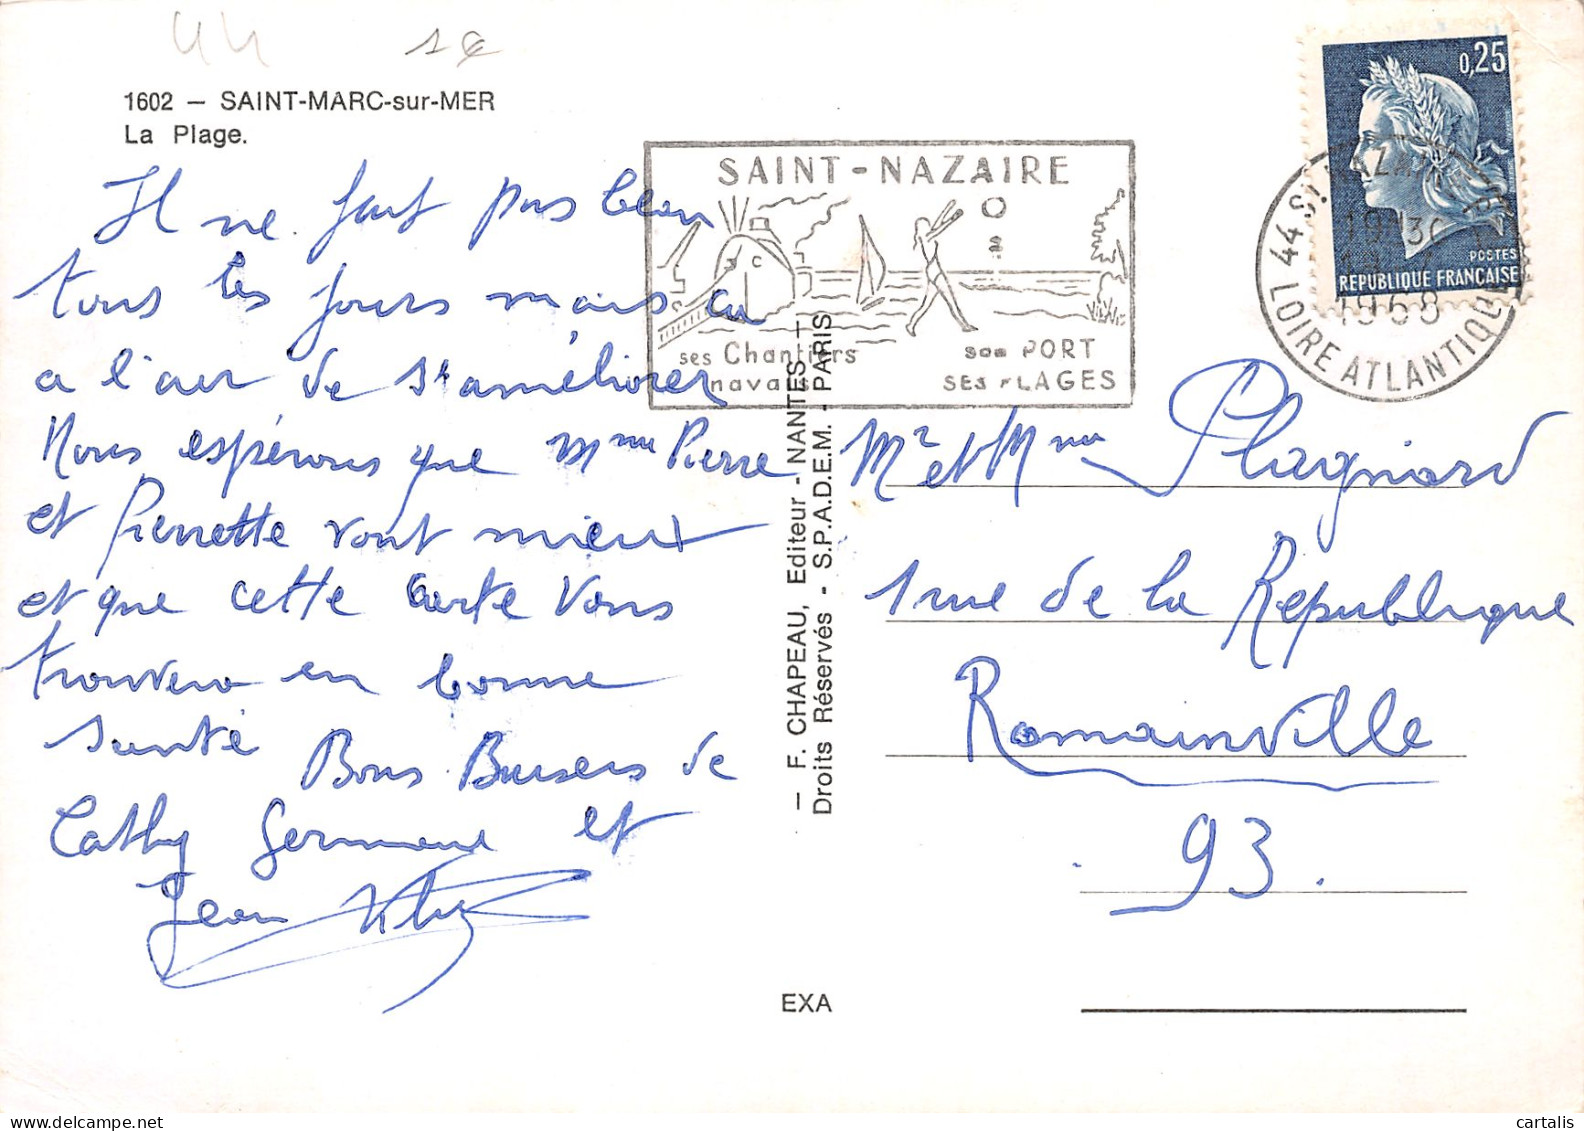 44 1€
1602 — SAINT-MARC-sur-MER
La Plage.
Il ne fait pas beau
tous les jours mais ça
a l'air de s'améliorer
Nous espérons que Mme Pierre
et Pierrette vont mieux
et que cette carte vous
trouvera en bonne
santé
Bons Baisers de
Cathy Germaine et
Jean
SAINT-NAZAIRE
ses Chantiers
navals
son PORT
SES PLAGES
— F. CHAPEAU, Editeur - NANTES —
Droits Réservés - S.P.A.D.E.M. - PARIS
EXA
0,25
POSTES
REPUBLIQUE FRANÇAISE
44 ST NAZAIRE
19H30
1968
LOIRE ATLANTIQUE
Mr et Mme Plagnard
1 rue de la République
Romainville
93.
cartalis